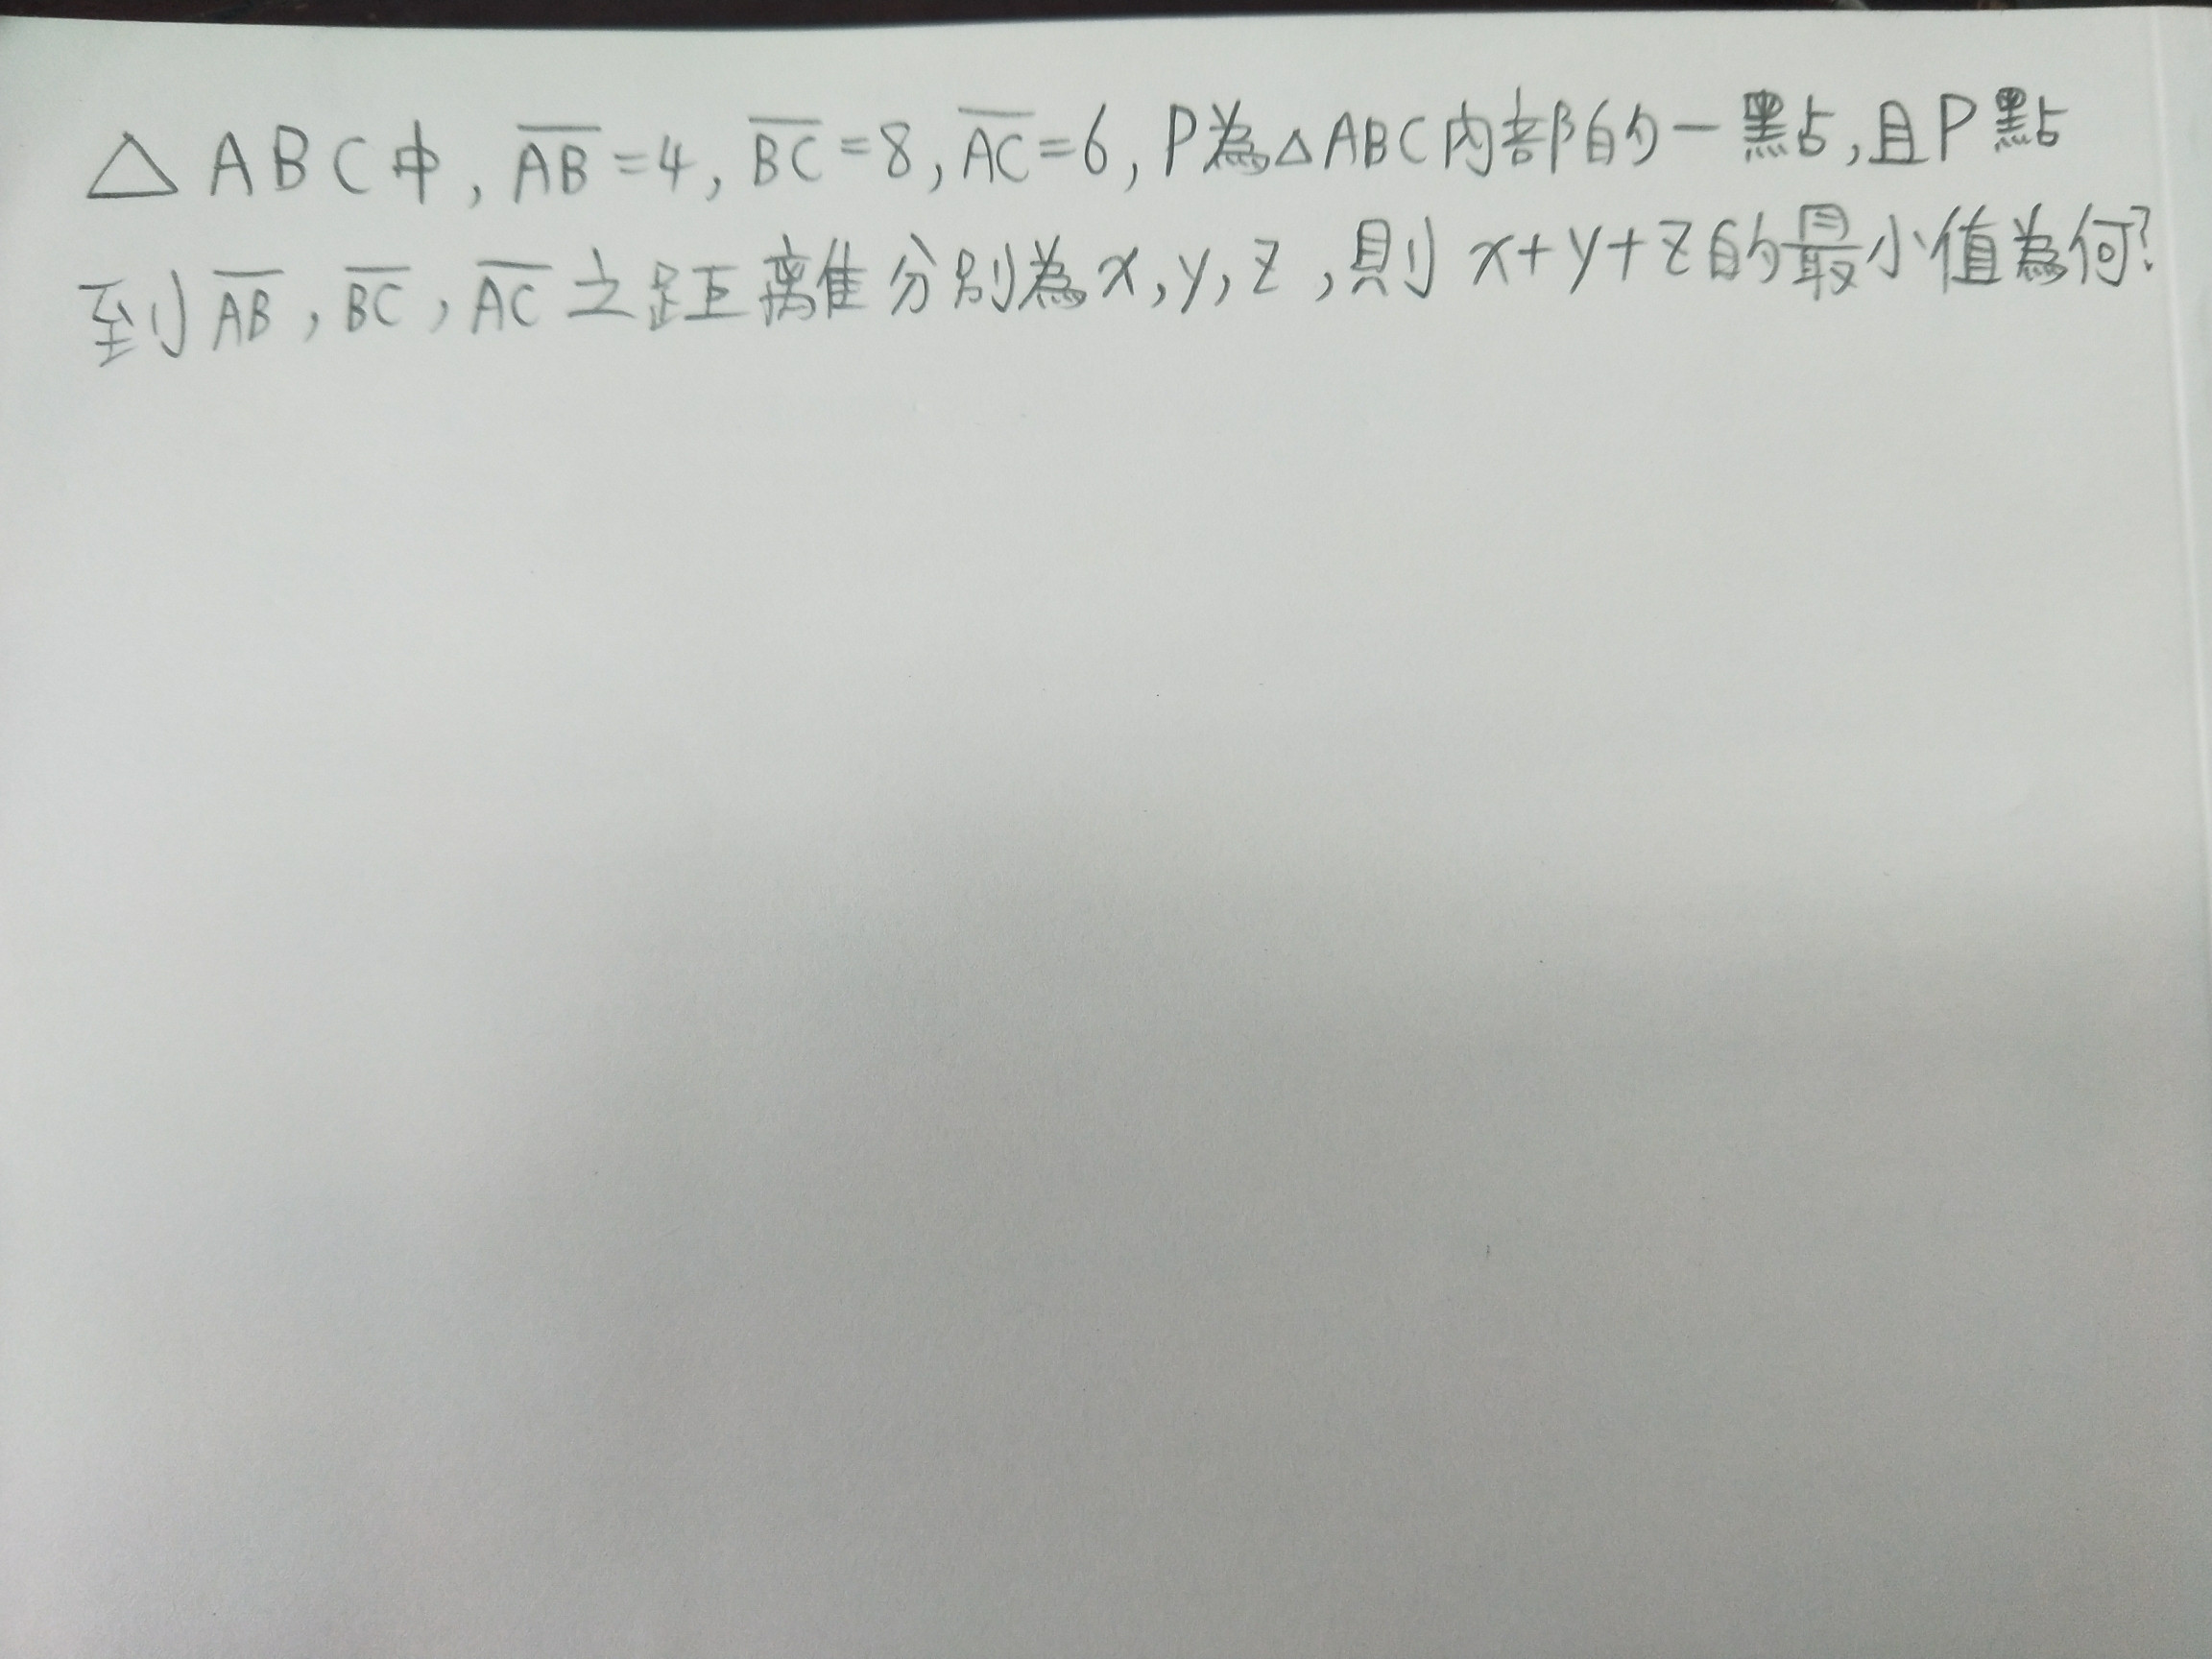 △ABC中, \overline{AB}=4, \overline{BC}=8, \overline{AC}=6, P為△ABC內部的一點,且P點
到\overline{AB}, \overline{BC}, \overline{AC}之距離分別為x,y,z,則x+y+z的最小值為何?